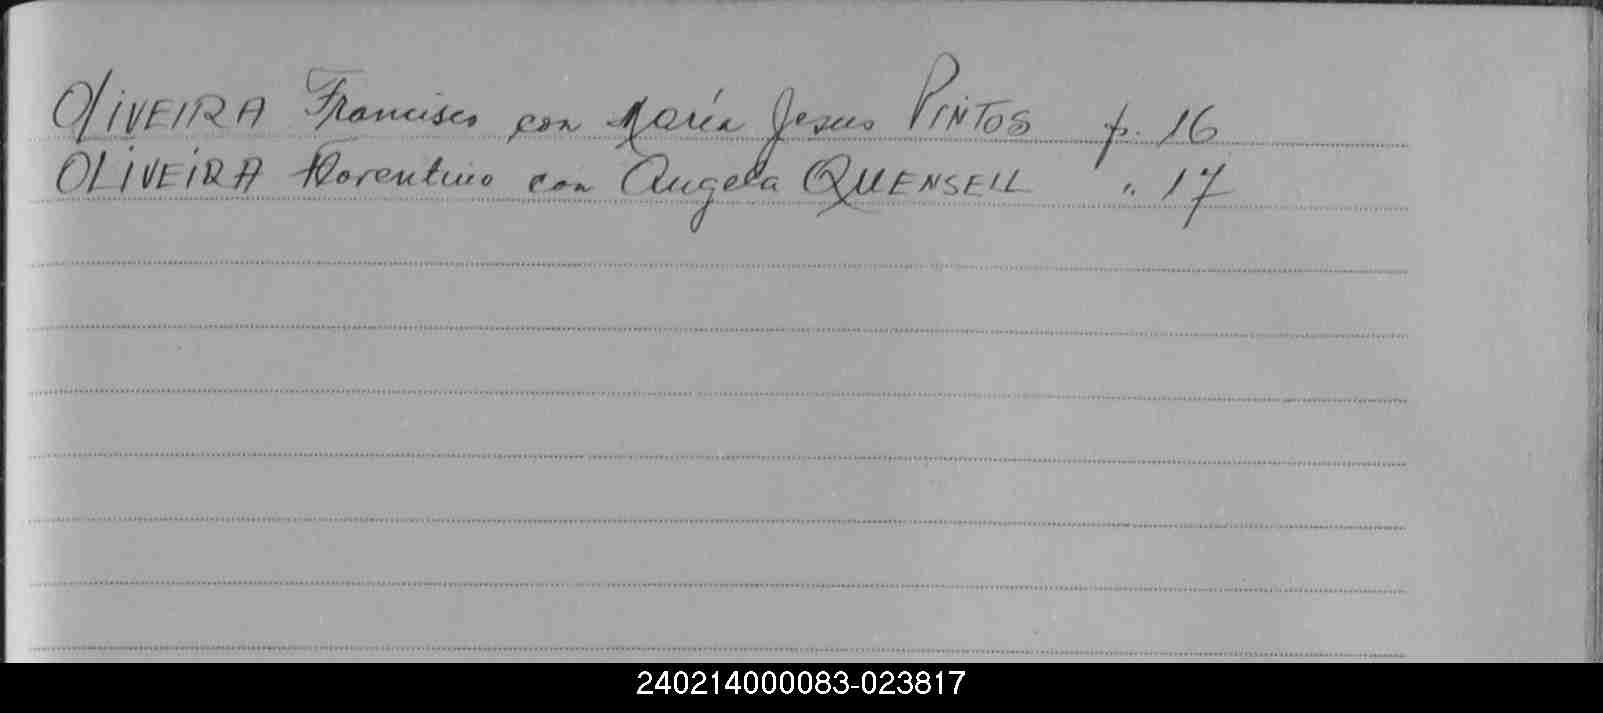 OLIVEIRA Francisco con María Jesus PINTOS p. 16
OLIVEIRA Florentino con Angela QUENSELL " 17
240214000083-023817